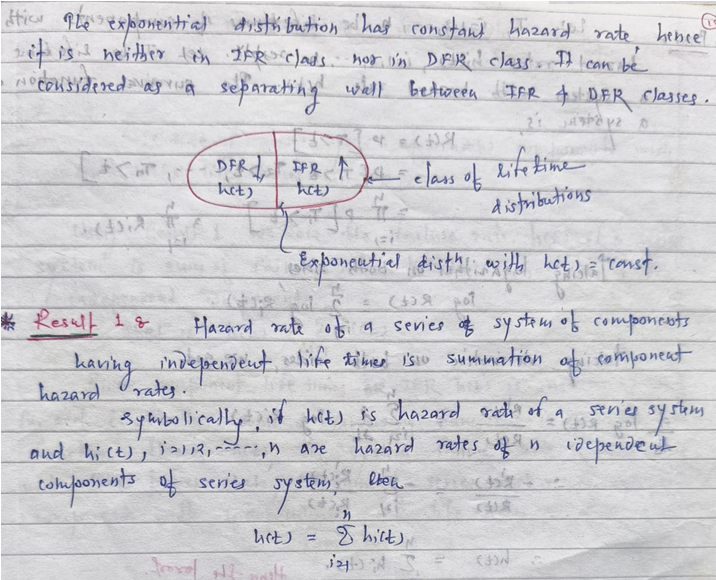 The exponential distribution has constant hazard rate, hence
it is neither in IFR class nor in DFR class. It can be
considered as a separating wall between IFR & DFR classes.
DFR ↓ IFR ↑
h(t) h(t)
← class of life time
distributions
Exponential distn. with h(t) = const.
* Result 1 : Hazard rate of a series of system of components
having independent life times is summation of component
hazard rates.
Symbolically, if h(t) is hazard rate of a series system
and hi(t), i=1,2,------,n are hazard rates of n idependent
components of series system, then
h(t) = n∑i=1 hi(t)